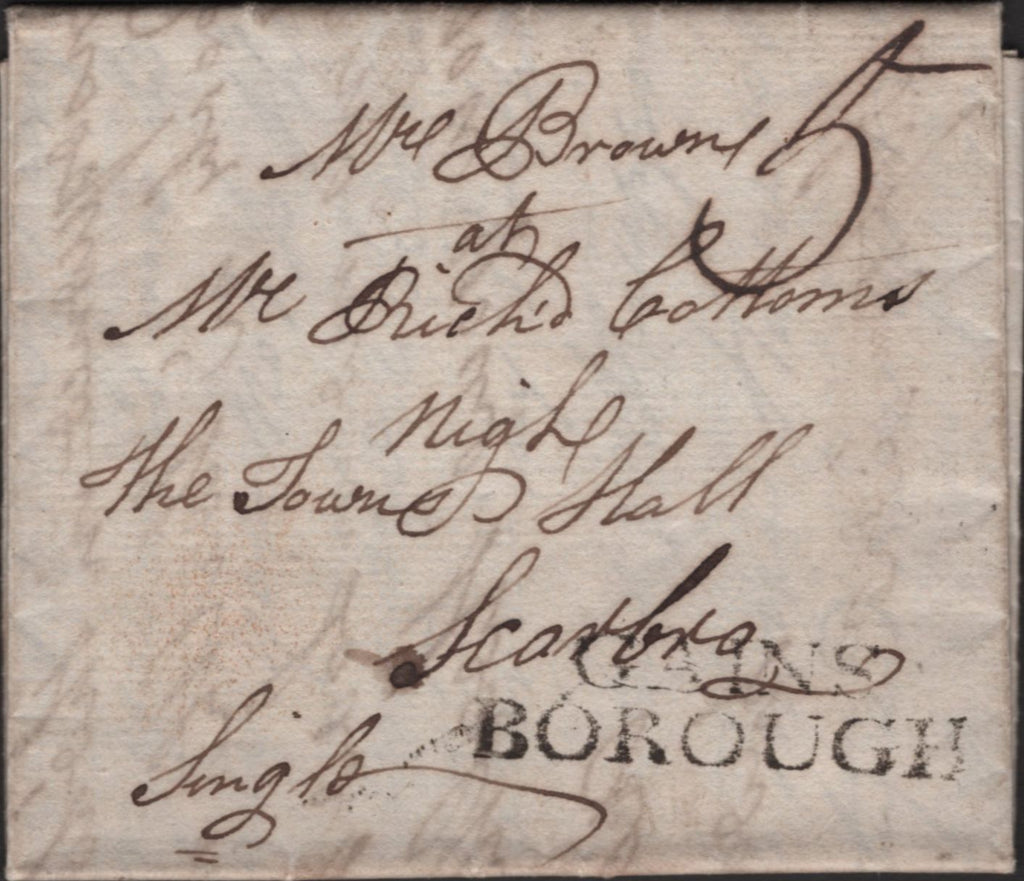 Mr Browne 5
at
Mr Rich'd Cottoms
nigh
The Towne Hall
Scarbro
GAINS
BOROUGH
Single